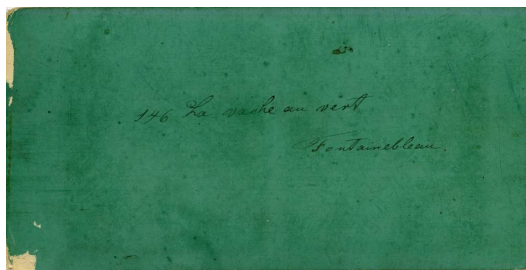 146 La vache au vert
Fontainebleau.